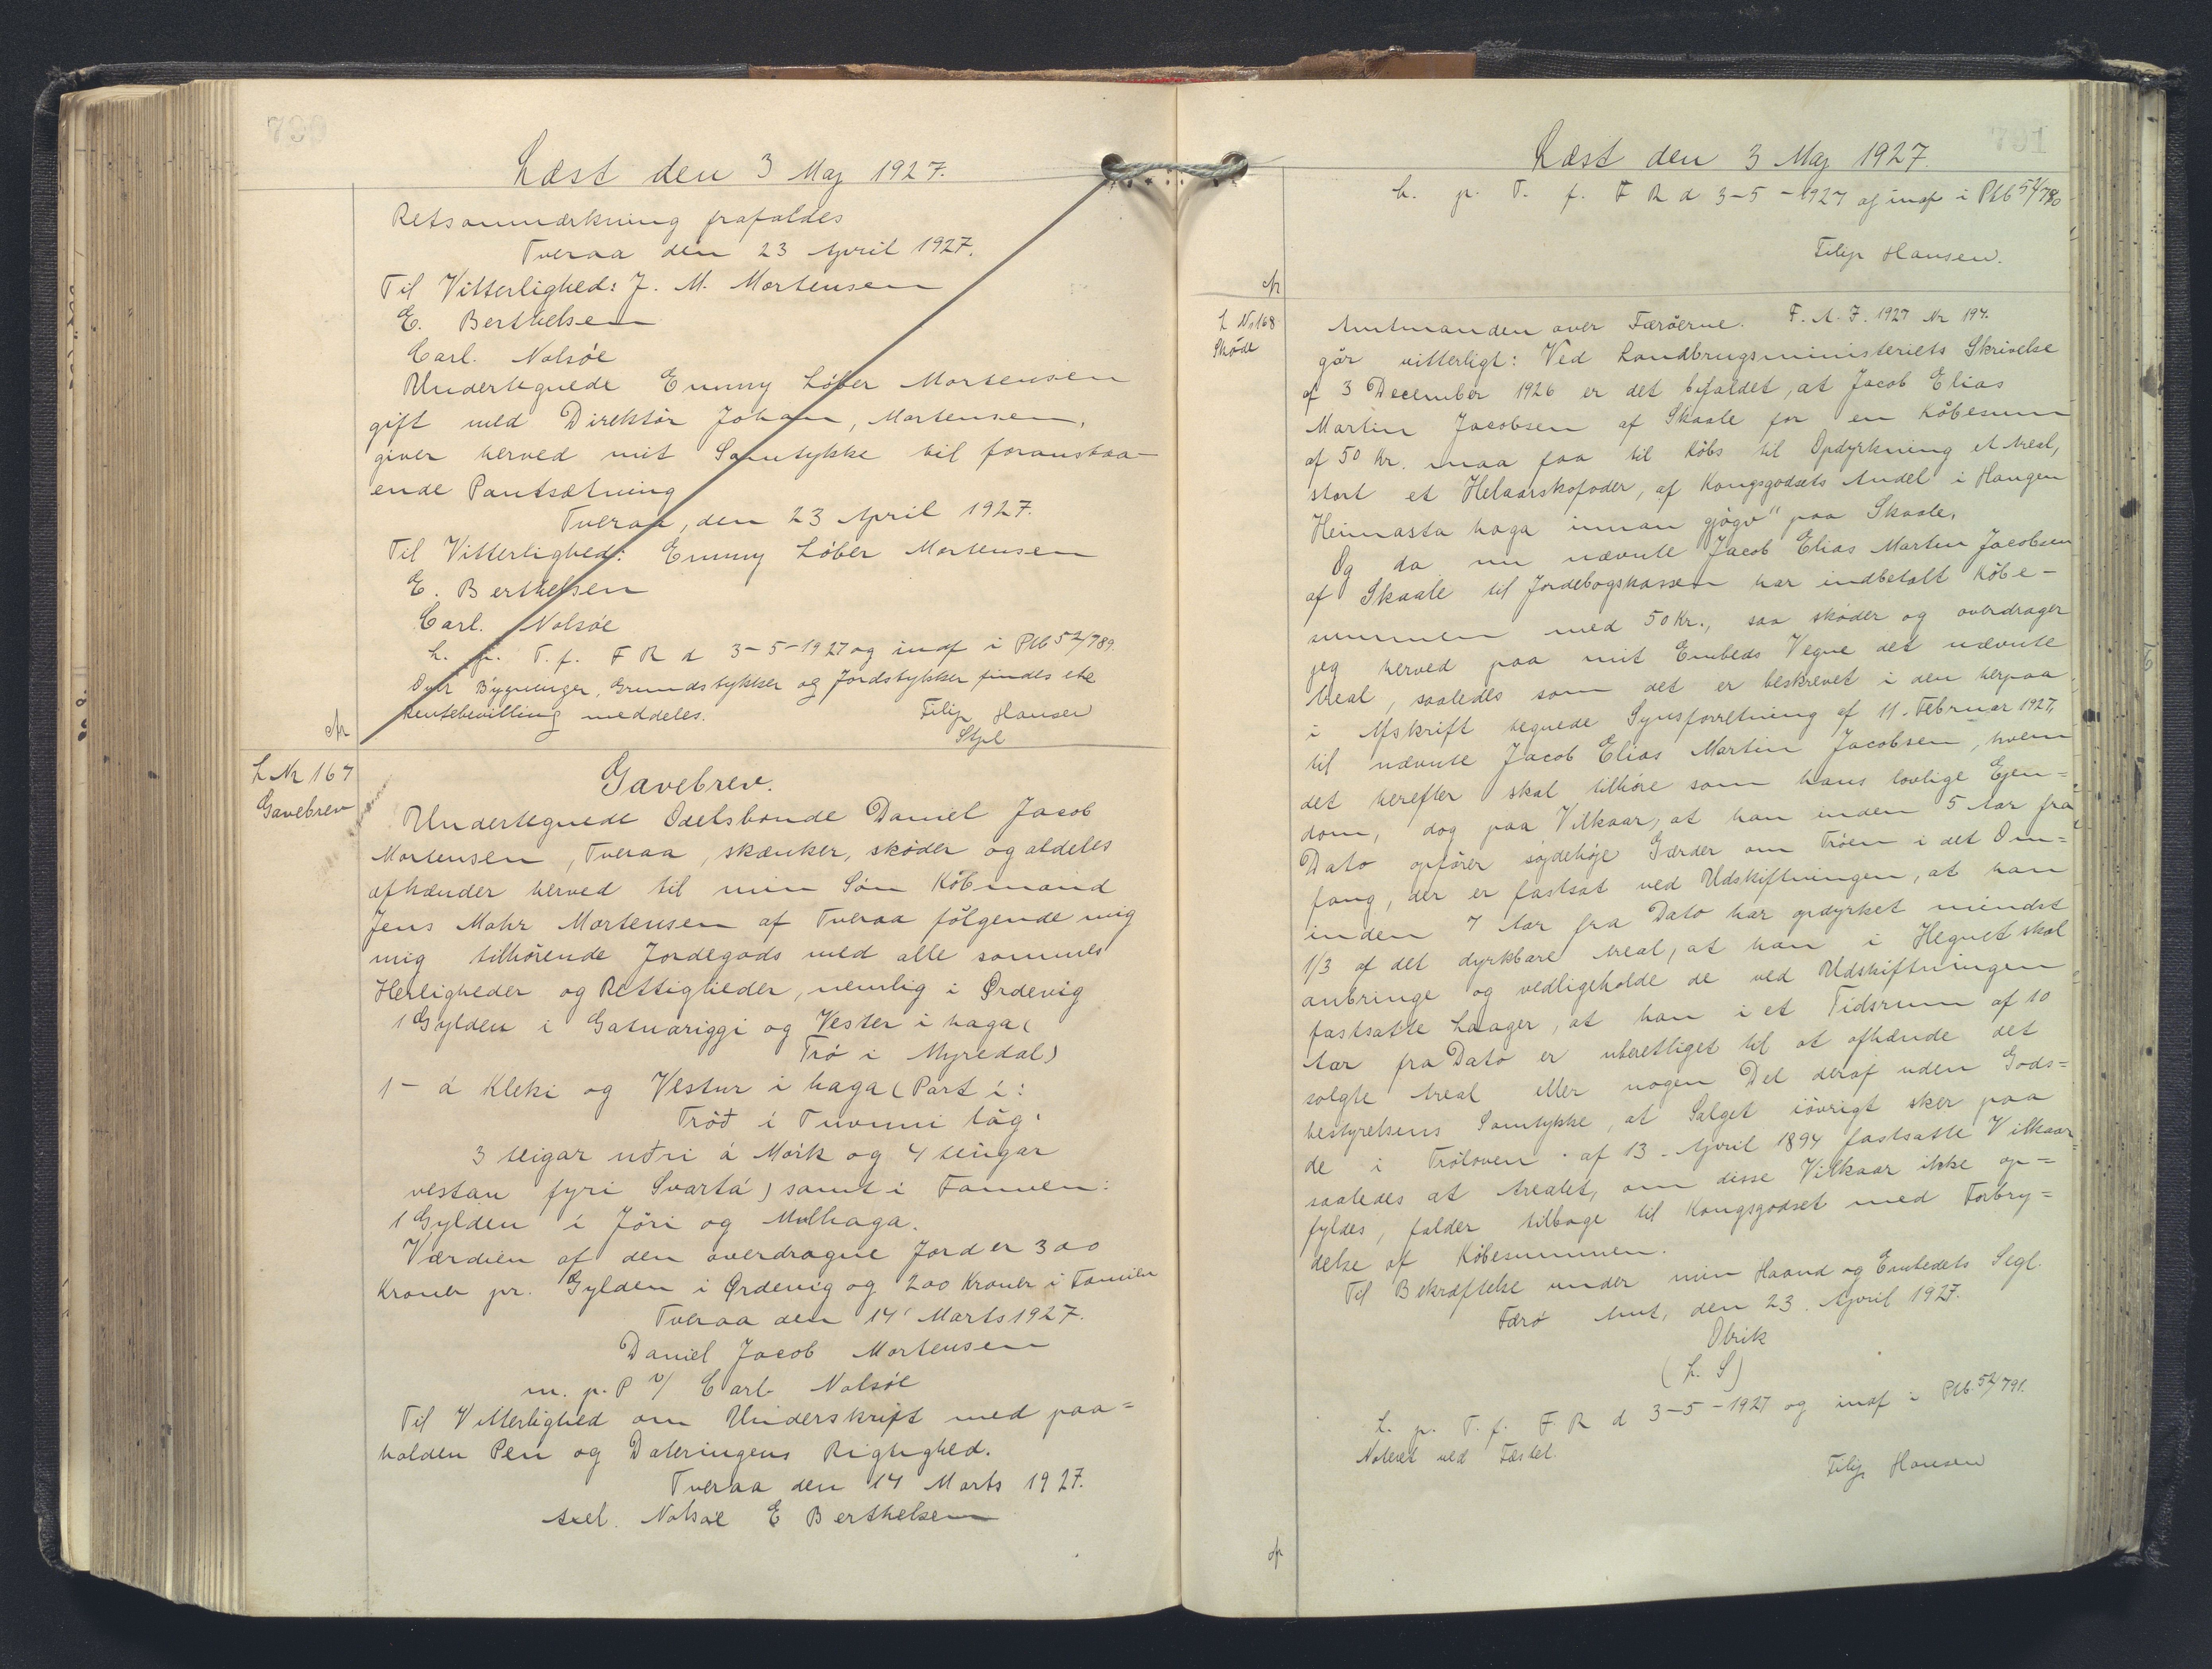 790
Læst den 3 Maj 1927.
Retsanmærkning frafaldes
Tveraa den 23 April 1927.
Til Vitterlighed: J. M. Mortensen
E. Berthelsen
Carl. Nolsöe
Undertegnede Emmy Löber Mortensen
gift med Direktör Johan, Mortensen,
giver herved mit Samtykke til foranstaa-
ende Pantsætning
Tveraa, den 23 April 1927.
Til Vitterlighed: Emmy Löber Mortensen
E. Berthelsen
Carl. Nolsöe
L. p. T. f. F R d 3-5-1927 og indf i Ptb 52/789.
Over Bygninger, Grundstykker og Jordstykker findes ete
Rentebevilling meddeles.
Filip Hansen
Stpl
L Nr 167
Gavebrev
Gavebrev.
Undertegnede Odelsbonde Daniel Jacob
Mortensen, Tveraa, skænker, sköder og aldeles
afhænder herved til min Sön Köbmand
Jens Mohr Mortensen af Tveraa fölgende mig
mig tilhörende Jordegods med alle sammes
Herligheder og Rettigheder, nemlig i Ördevig
1 Gylden i Gatnariggi og Vester i haga (
Trö i Myredal)
1 - á Kleki og Vestur i haga (Part i:
Tröð i Tuvuni låg:
3 teigar uðri á Mörk og 4 teigar
vestan fyri Svartá) samt i Famien:
1 Gylden i Jöri og Mulhaga.
Værdien af den overdragne Jord er 300
Kroner pr. Gylden i Ördevig og 200 Kroner i Famien
Tveraa den 14' Marts 1927.
Daniel Jacob Mortensen
m. p. P v/ Carl Nolsöe
Til Vitterlighed om Underskrift med paa=
holden Pen og Dateringens Rigtighed.
Tveraa den 14 Marts 1927.
Axel. Nolsöe E Berthelsen
791
Læst den 3 Maj 1927.
L. p. T. f. F R d 3-5-1927 og indf i Ptb 52/790
Filip Hansen.
L No 168
Sköde
Amtmanden over Færöerne. F. A. J. 1927 Nr 194.
gör vitterligt: Ved Landbrugsministeriets Skrivelse
af 3 December 1926 er det bifaldet, at Jacob Elias
Martin Jacobsen af Skaale for en Köbesum
af 50 Kr. maa faa til Köbs til Opdyrkning et Areal,
stort et Helaarskofoder, af Kongsgodsets Andel i Haugen
Heimasta haga innan gjógv" paa Skaale.
Og da nu nævnte Jacob Elias Martin Jacobsen
af Skaale til Jordebogskassen har indbetalt Köbe-
summen med 50 Kr., saa sköder og overdrager
jeg herved paa mit Embeds Vegne det nævnte
Areal, saaledes som det er beskrevet i den herpaa
i Afskrift tegnede Synsforretning af 11. Februar 1927,
til nævnte Jacob Elias Martin Jacobsen, hvem
det herefter skal tilhöre som hans lovlige Ejen=
dom, dog paa Vilkaar, at han inden 5 Aar fra
Dato opförer sojdehöje Gærder om Tröen i det Om=
fang, der er fastsat ved Udskiftningen, at han
inden 7 Aar fra Dato har opdyrket mindst
1/3 af det dyrkbare Areal, at han i Hegnet skal
anbringe og vedligeholde de ved Udskiftningen
fastsatte Laager, at han i et Tidsrum af 10
Aar fra Dato er uberettiget til at afhænde det
solgte Areal eller nogen Del deraf uden Gods=
bestyrelsens Samtykke, at Salget iövrigt sker paa
de i Tröloven af 13. April 1894 fastsatte Vilkaar
saaledes at Arealet, om disse Vilkaar ikke op=
fyldes, falder tilbage til Kongsgodset med Forbry=
delse af Köbesummen.
Til Bekræftelse under min Haand og Embedets Segl.
Færö Amt, den 23. April 1927.
Obrik
(L. S)
L. p. T. f. F. R d 3-5-1927 og indf i Ptb. 52/791.
Noteret ved Fæstet.
Filip Hansen